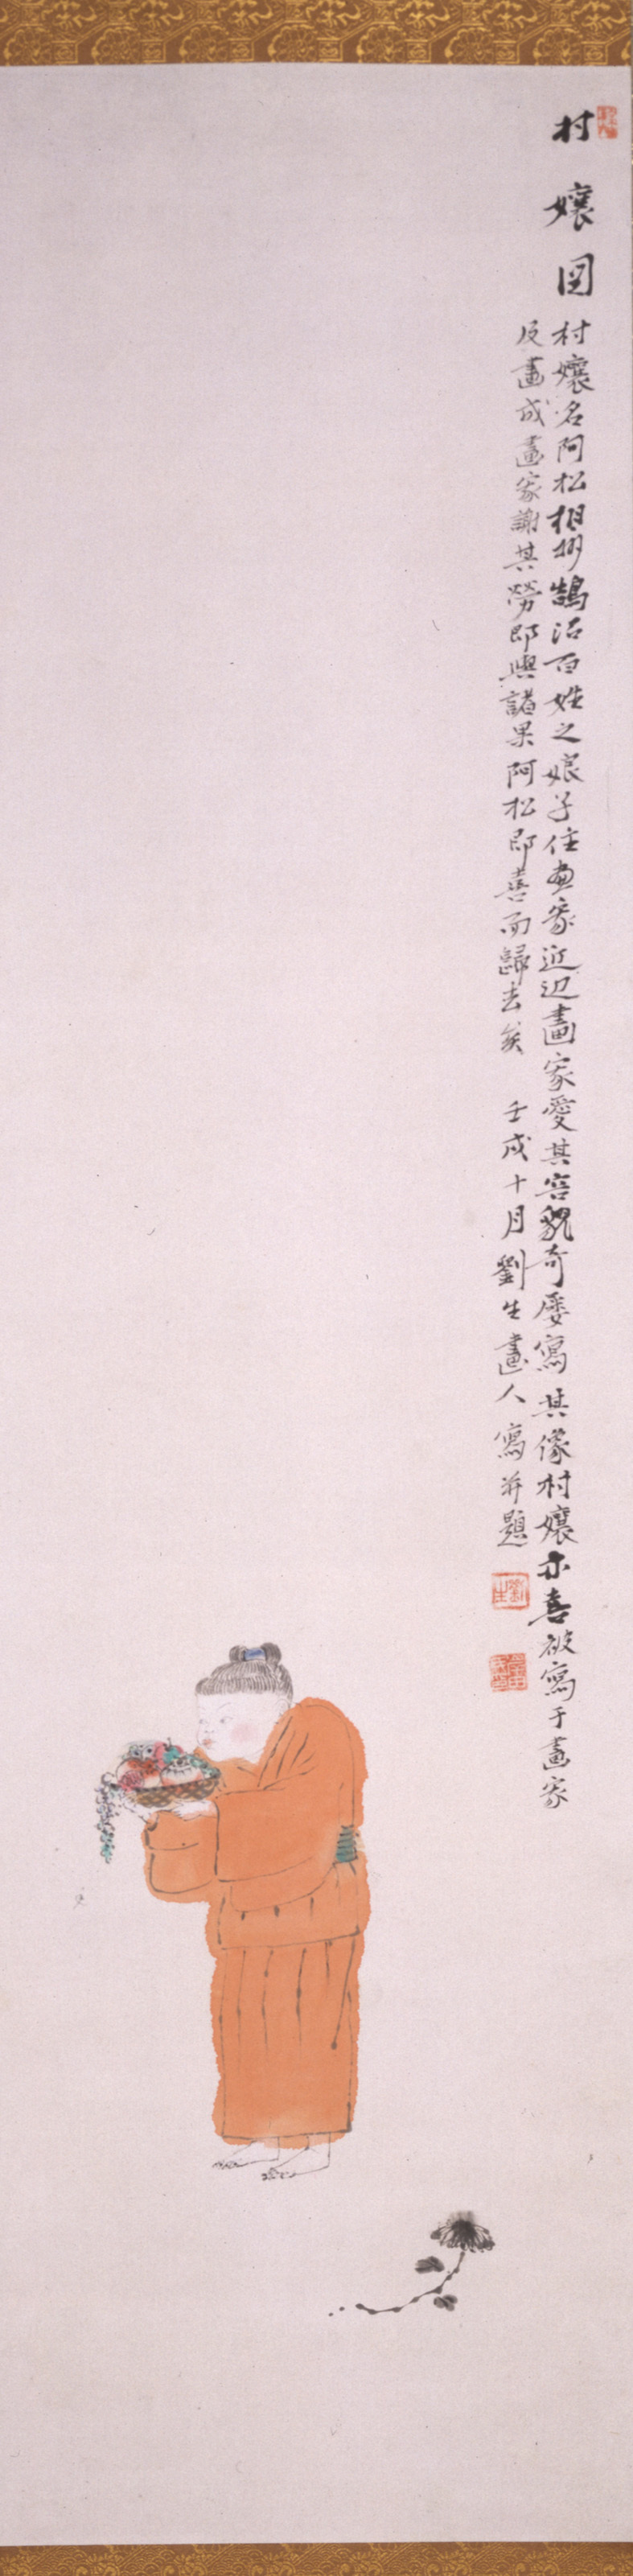 村嬢図
村嬢名阿松相州鵠沼百姓之娘子住画家近辺畫家愛其容貌奇屡寫其像村嬢亦喜被寫于畫家
及畫成畫家謝其勞即與諸果阿松即喜而歸去矣 壬戌十月劉生畫人寫并題
劉生